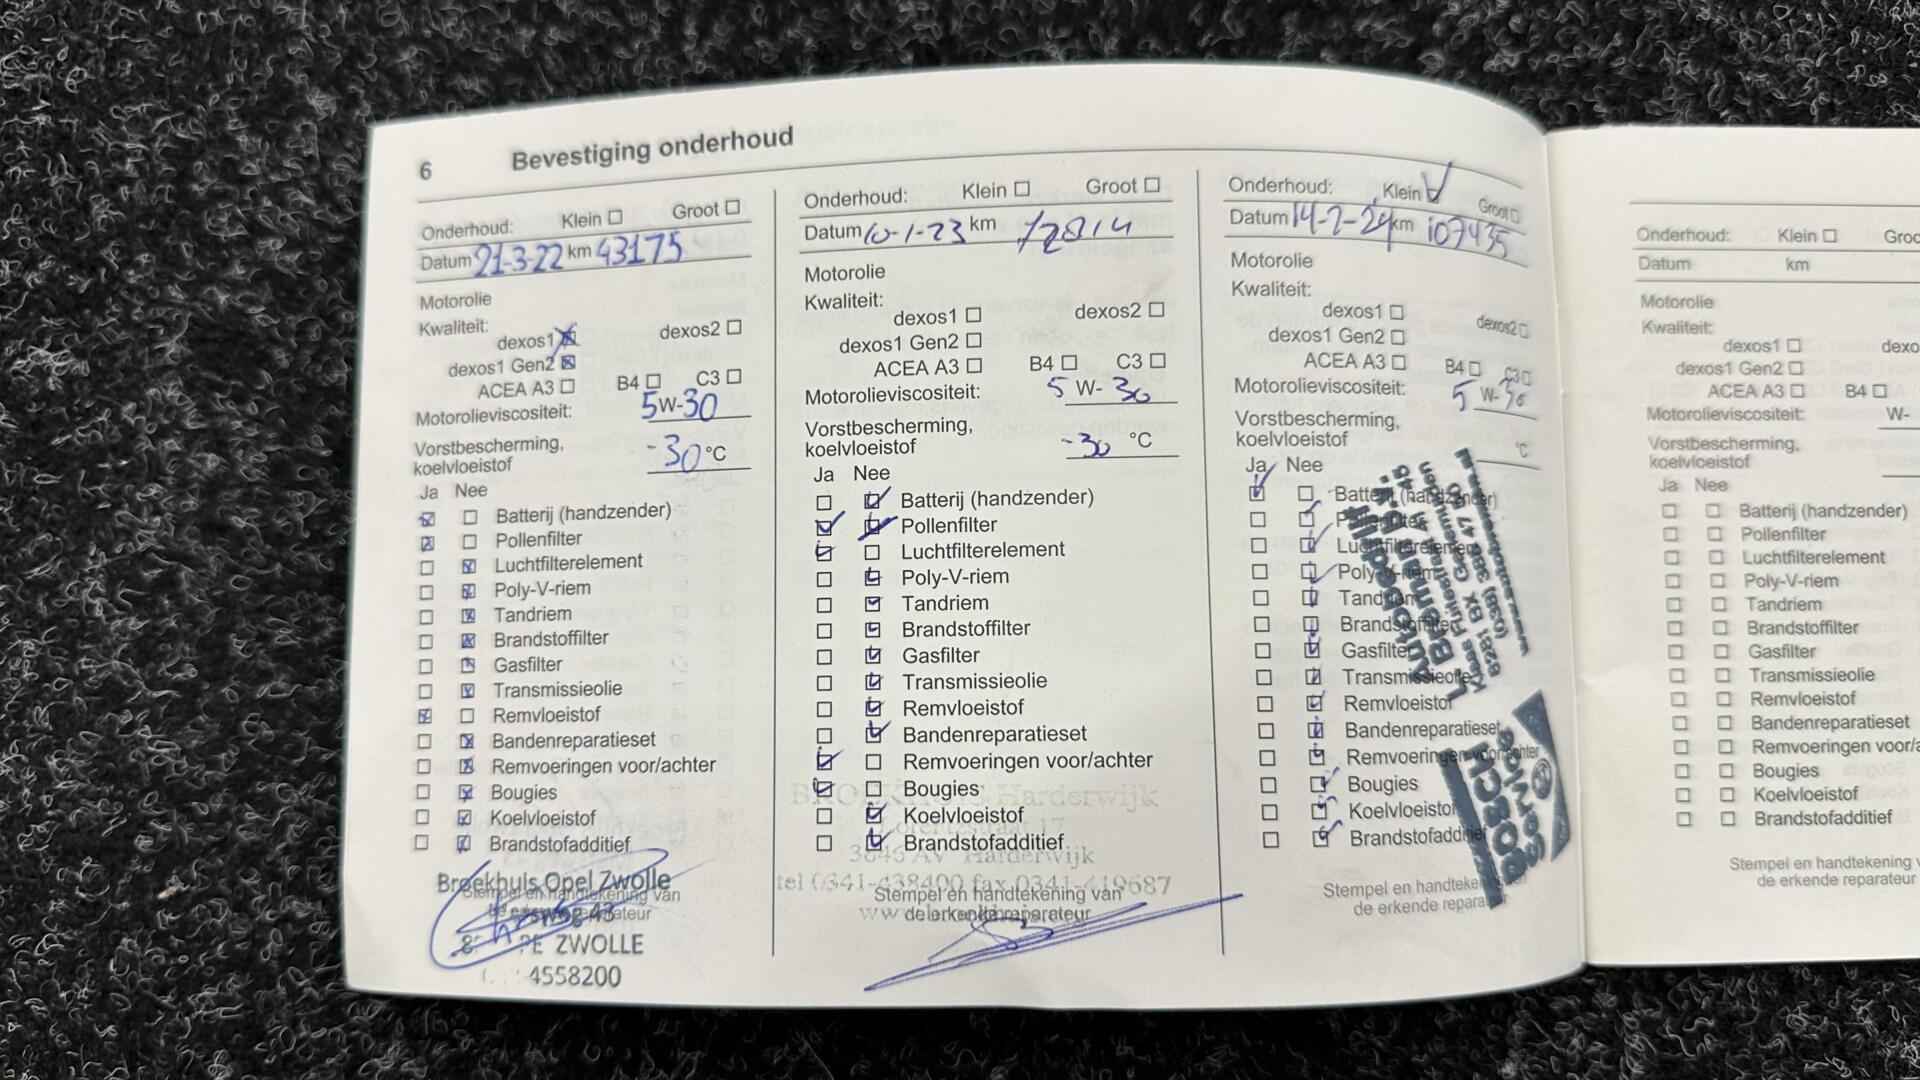 6 Bevestiging onderhoud
Onderhoud: Klein Groot
Datum 21-3-22 km 43175
Motorolie
Kwaliteit:
dexos1 dexos2
dexos1 Gen2
ACEA A3 B4 C3
Motorolieviscositeit: 5W-30
Vorstbescherming,
koelvloeistof -30 °C
Ja Nee
Batterij (handzender)
Pollenfilter
Luchtfilterelement
Poly-V-riem
Tandriem
Brandstoffilter
Gasfilter
Transmissieolie
Remvloeistof
Bandenreparatieset
Remvoeringen voor/achter
Bougies
Koelvloeistof
Brandstofadditief
Broekhuis Opel Zwolle
Stempel en handtekening van
ZWOLLE
4558200
Onderhoud: Klein Groot
Datum 10-1-23 km 72814
Motorolie
Kwaliteit:
dexos1 dexos2
dexos1 Gen2
ACEA A3 B4 C3
Motorolieviscositeit: 5 W- 30
Vorstbescherming,
koelvloeistof -30 °C
Ja Nee
Batterij (handzender)
Pollenfilter
Luchtfilterelement
Poly-V-riem
Tandriem
Brandstoffilter
Gasfilter
Transmissieolie
Remvloeistof
Bandenreparatieset
Remvoeringen voor/achter
Bougies
BROEKHUIS Harderwijk
Koelvloeistof
Lorentzstraat 17
Brandstofadditief
3846 AV Harderwijk
tel 0341-438400 fax 0341-419687
Stempel en handtekening van
de erkende reparateur
Onderhoud: Klein Groot
Datum 14-2-24 km 107435
Motorolie
Kwaliteit:
dexos1 dexos2
dexos1 Gen2
ACEA A3 B4 C3
Motorolieviscositeit: 5 W-30
Vorstbescherming,
koelvloeistof °C
Ja Nee
Batterij (handzender)
Pollenfilter
Luchtfilterelement
Poly-V-riem
Tandriem
Brandstoffilter
Gasfilter
Transmissieolie
Remvloeistof
Bandenreparatieset
Remvoeringen voor/achter
Bougies
Koelvloeistof
Brandstofadditief
Autobedrijf
L. Bremer
8281 BX Genemuiden
BOSCH
Service
Stempel en handtekening
de erkende reparat
Onderhoud: Klein Groo
Datum km
Motorolie
Kwaliteit:
dexos1 dexo
dexos1 Gen2
ACEA A3 B4
Motorolieviscositeit: W-
Vorstbescherming,
koelvloeistof
Ja Nee
Batterij (handzender)
Pollenfilter
Luchtfilterelement
Poly-V-riem
Tandriem
Brandstoffilter
Gasfilter
Transmissieolie
Remvloeistof
Bandenreparatieset
Remvoeringen voor/a
Bougies
Koelvloeistof
Brandstofadditief
Stempel en handtekening v
de erkende reparateur